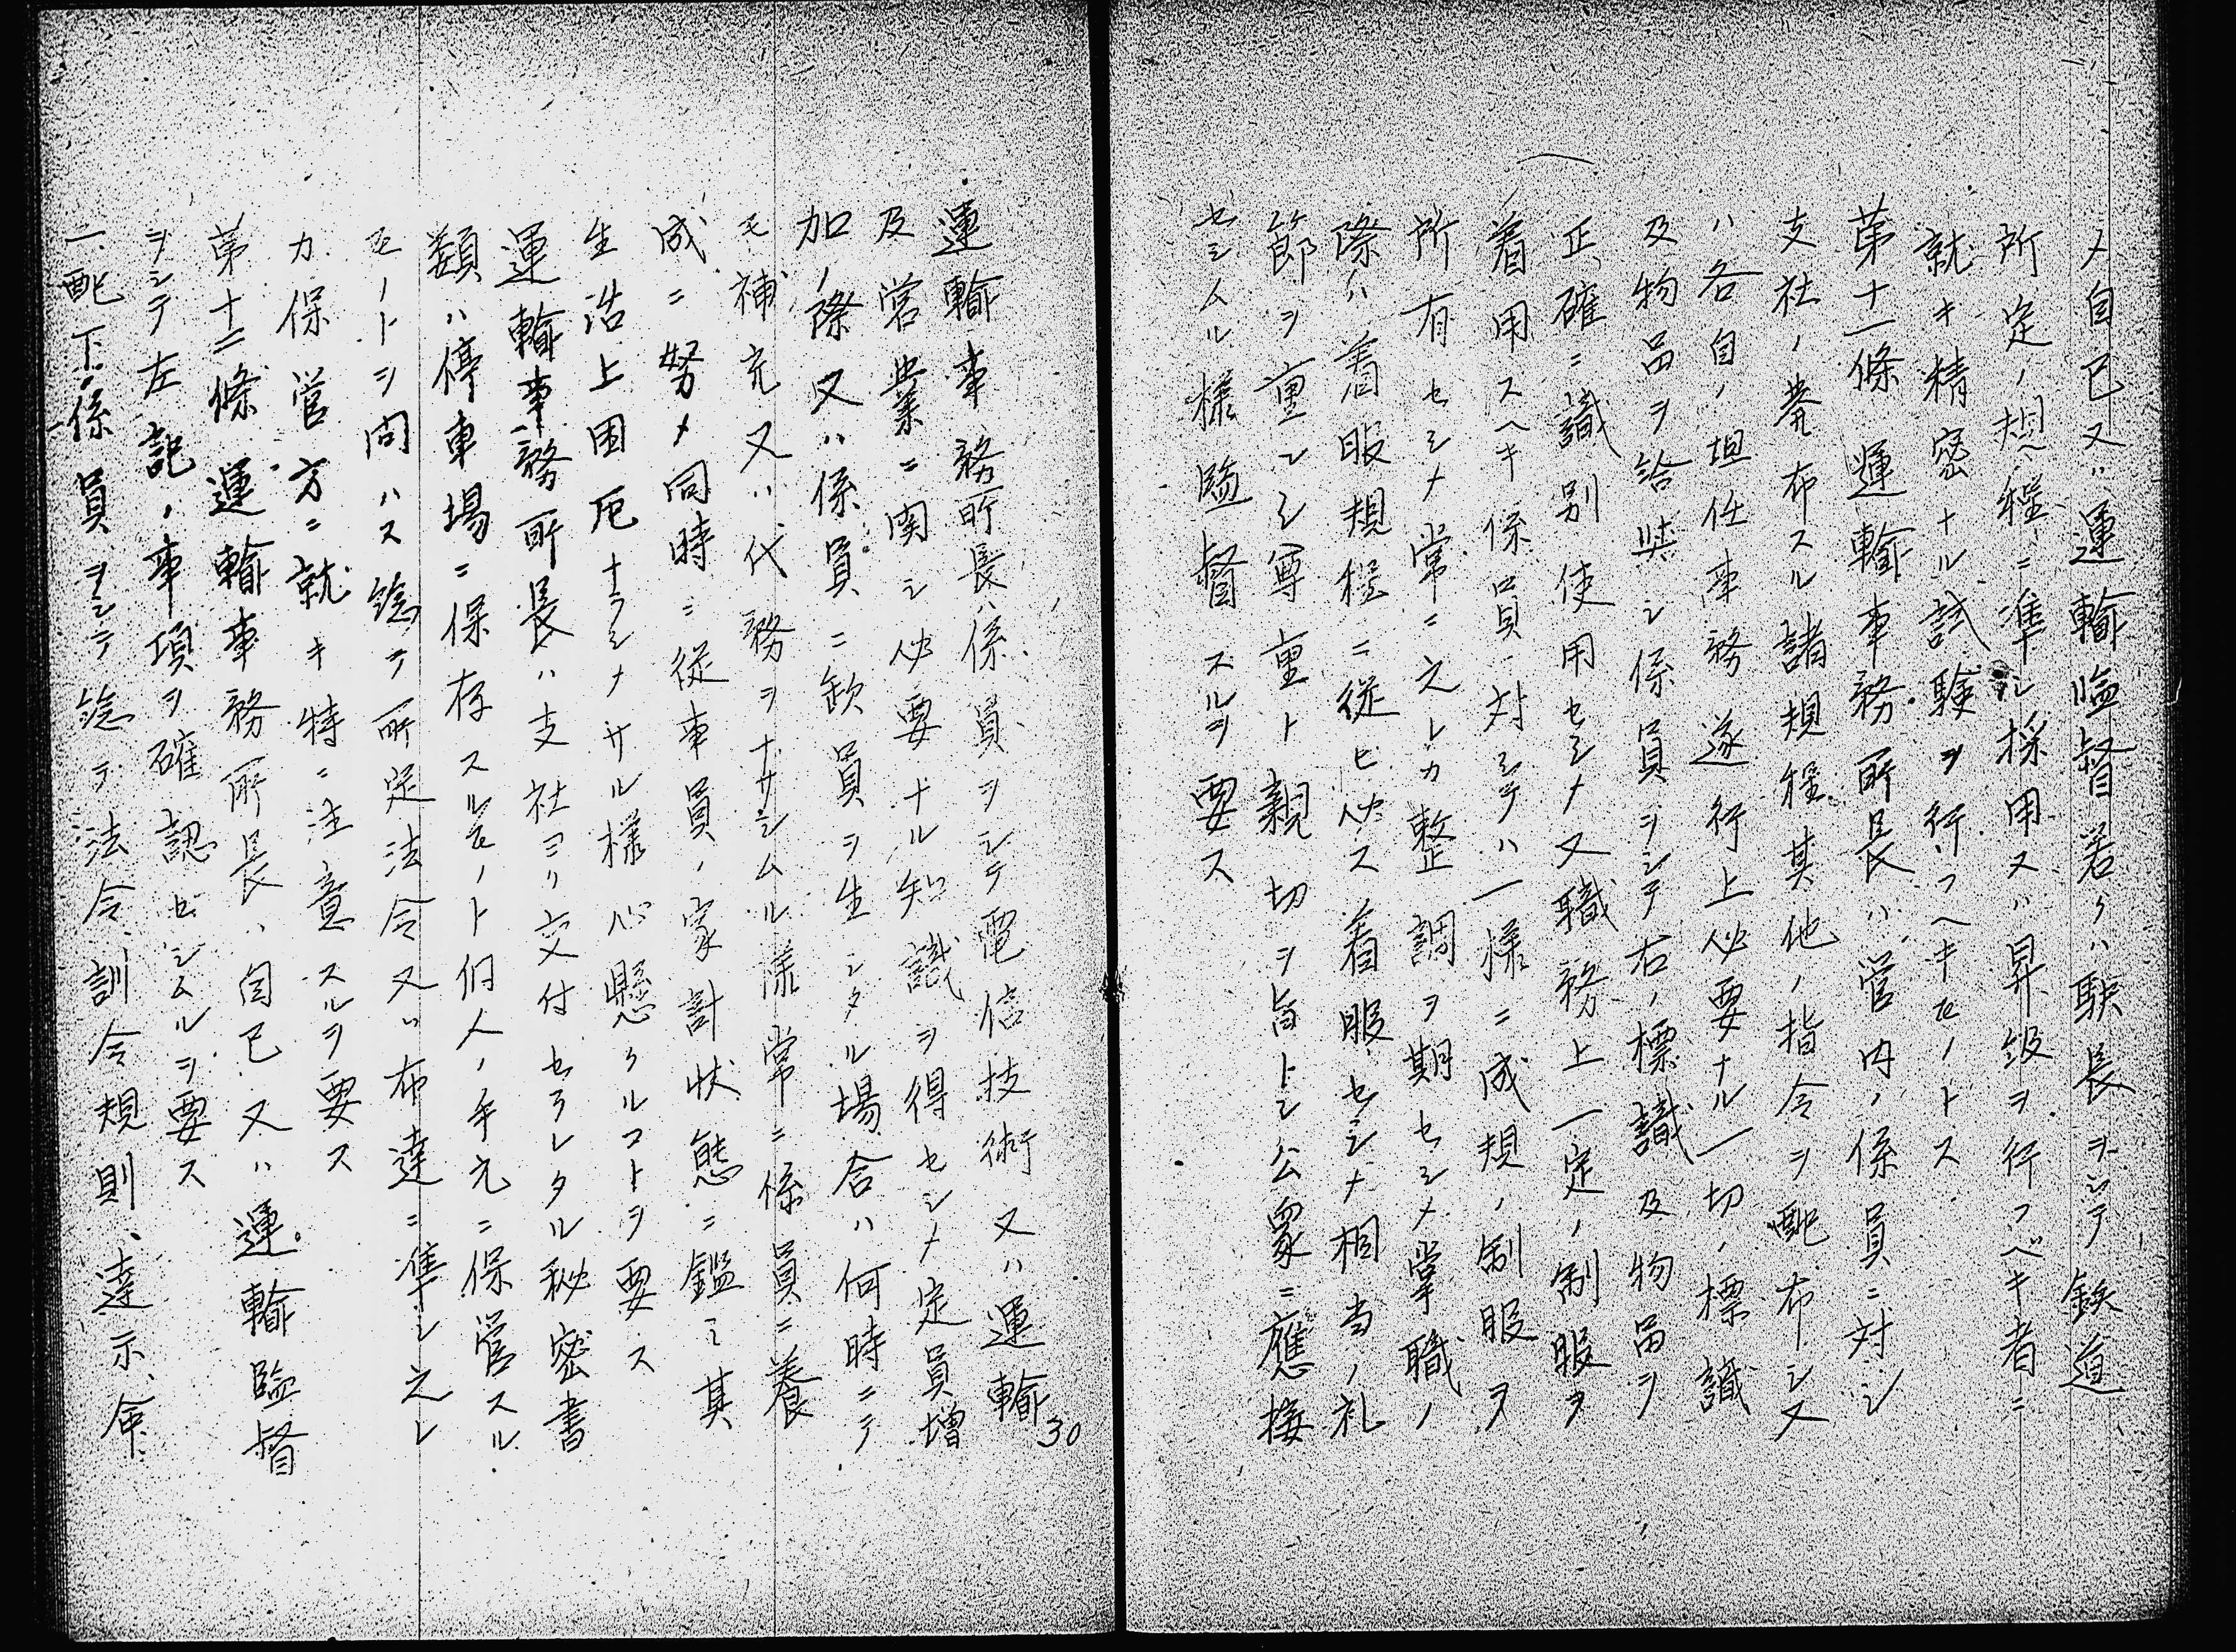 メ自己又ハ運輸監督若クハ駅長ヲシテ鉄道
所定ノ規程ニ準シ採用又ハ昇級ヲ行フベキ者ニ
就キ精密ナル試験ヲ行フヘキモノトス
第十一條 運輸事務所長ハ管内ノ係員ニ対シ
支社ノ発布スル諸規程其他ノ指令ヲ配布シ又
ハ各自ノ担任事務遂行上必要ナル一切ノ標識
及物品ヲ給與シ係員ヲシテ右ノ標識及物品ヲ
正確ニ識別使用セシメ又職務上一定ノ制服ヲ
着用スヘキ係員ニ対シテハ一様ニ成規ノ制服ヲ
所有セシメ常ニ之レカ整調ヲ期セシメ掌職ノ
際ハ着服規程ニ従ヒ必ス着服セシメ相当ノ礼
節ヲ重ンシ尊重ト親切ヲ旨トシ公衆ニ應接
セシムル様監督スルヲ要ス
運輸事務所長ハ係員ヲシテ電信技術又ハ運輸
及営業ニ関シ必要ナル知識ヲ得セシメ定員増
加ノ際又ハ係員ニ欠員ヲ生シタル場合ハ何時ニテ
モ補充又ハ代務ヲナサシムル様常ニ係員ニ養
成ニ努メ同時ニ従事員ノ家計状態ニ鑑ミ其
生活上困厄ナラシメサル様心懸クルコトヲ要ス
運輸事務所長ハ支社ヨリ交付セラレタル秘密書
類ハ停車場ニ保存スルモノト何人ノ手元ニ保管スル
モノトヲ問ハス総テ所定法令又ハ布達ニ準シ之レ
カ保管方ニ就キ特ニ注意スルヲ要ス
第十二條 運輸事務所長ハ自己又ハ運輸監督
ヲシテ左記ノ事項ヲ確認セシムルヲ要ス
一、配下係員ヲシテ総テ法令、訓令規則、達示、命
30